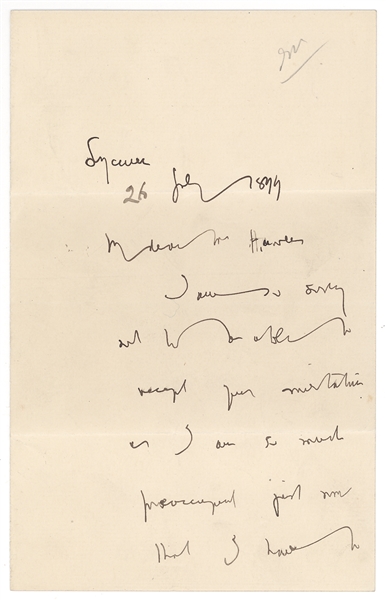 26 July 1899
My dear Mr
I am so sorry
not to be able to
accept your invitation
as I am so much
preoccupied just now
that I have to